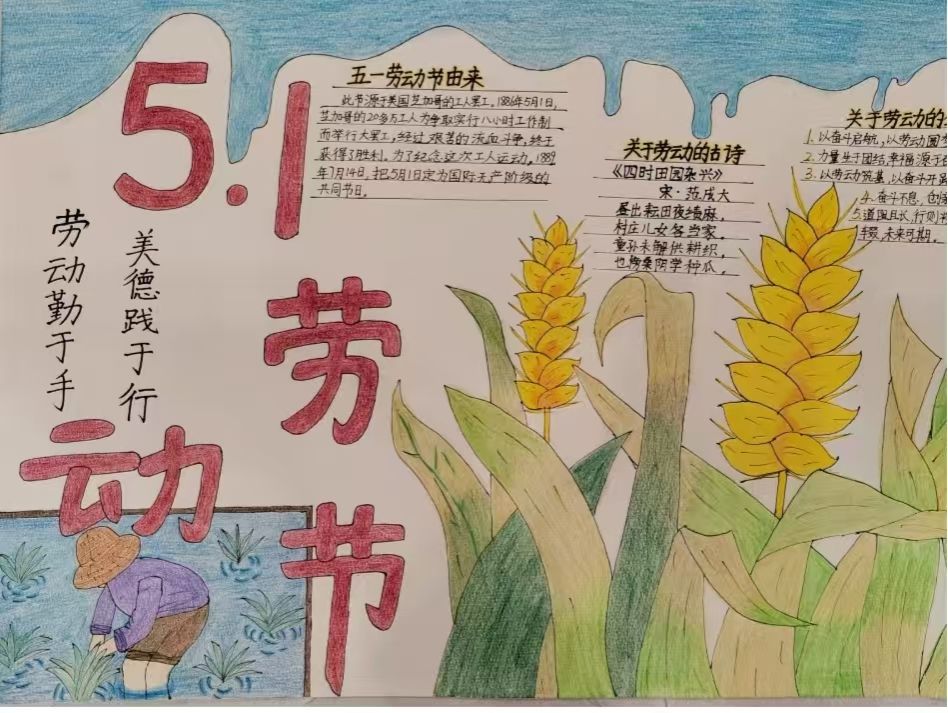 5.1
劳
动
节
劳动勤于手
美德践于行
五一劳动节由来
此节源于美国芝加哥的工人罢工。1886年5月1日,
芝加哥的20多万工人为争取实行八小时工作制
而举行大罢工,经过艰苦的流血斗争,终于
获得了胜利。为了纪念这次工人运动,1889
年7月14日,把5月1日定为国际无产阶级的
共同节日。
关于劳动的古诗
《四时田园杂兴》
宋·范成大
昼出耘田夜绩麻,
村庄儿女各当家。
童孙未解供耕织,
也傍桑阴学种瓜。
关于劳动的
1. 以奋斗启航,以劳动圆
2. 力量生于团结,幸福源于
3. 以劳动筑基,以奋斗开
4. 奋斗不息,
5. 道阻且长,行则
辍,未来可期。